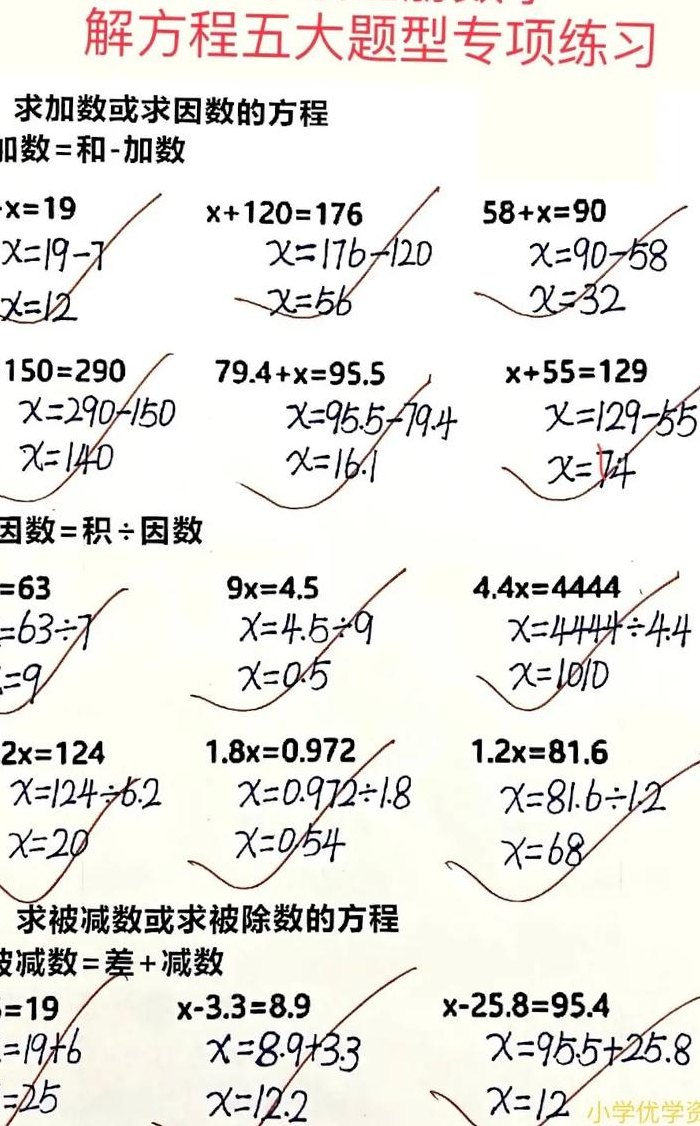 解方程五大题型专项练习
求加数或求因数的方程
加数=和-加数
x=19 x+120=176 58+x=90
x=19-7 x=176-120 x=90-58
x=12 x=56 x=32
150=290 79.4+x=95.5 x+55=129
x=290-150 x=95.5-79.4 x=129-55
x=140 x=16.1 x=74
因数=积÷因数
=63 9x=4.5 4.4x=4444
=63÷7 x=4.5÷9 x=4444÷4.4
=9 x=0.5 x=1010
2x=124 1.8x=0.972 1.2x=81.6
x=124÷6.2 x=0.972÷1.8 x=81.6÷1.2
x=20 x=0.54 x=68
求被减数或求被除数的方程
被减数=差+减数
=19 x-3.3=8.9 x-25.8=95.4
=19+6 x=8.9+3.3 x=95.5+25.8
=25 x=12.2 x=12
小学优学资